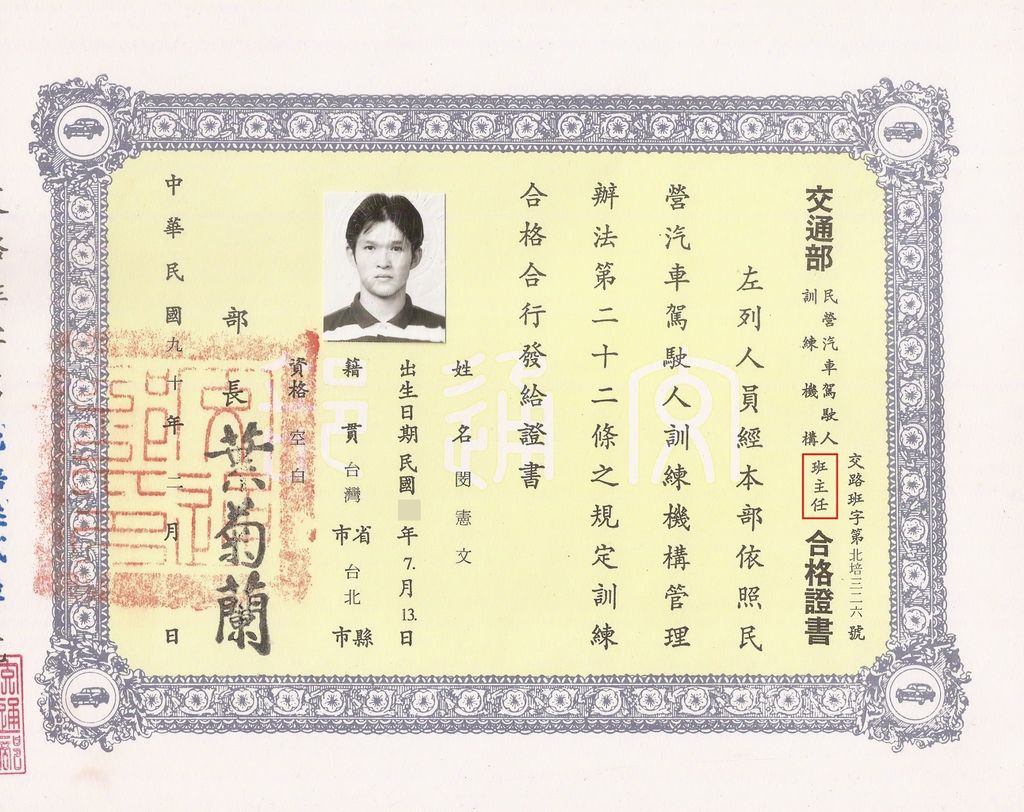 交路班字第北培三二六號
交通部民營汽車駕駛人訓練機構班主任合格證書
左列人員經本部依照民
營汽車駕駛人訓練機構管理
辦法第二十二條之規定訓練
合格合行發給證書
姓名閔憲文
出生日期民國年7.月13.日
籍貫台灣省市台北縣市
資格空白
部長葉菊蘭
中華民國九十年二月日
交通部